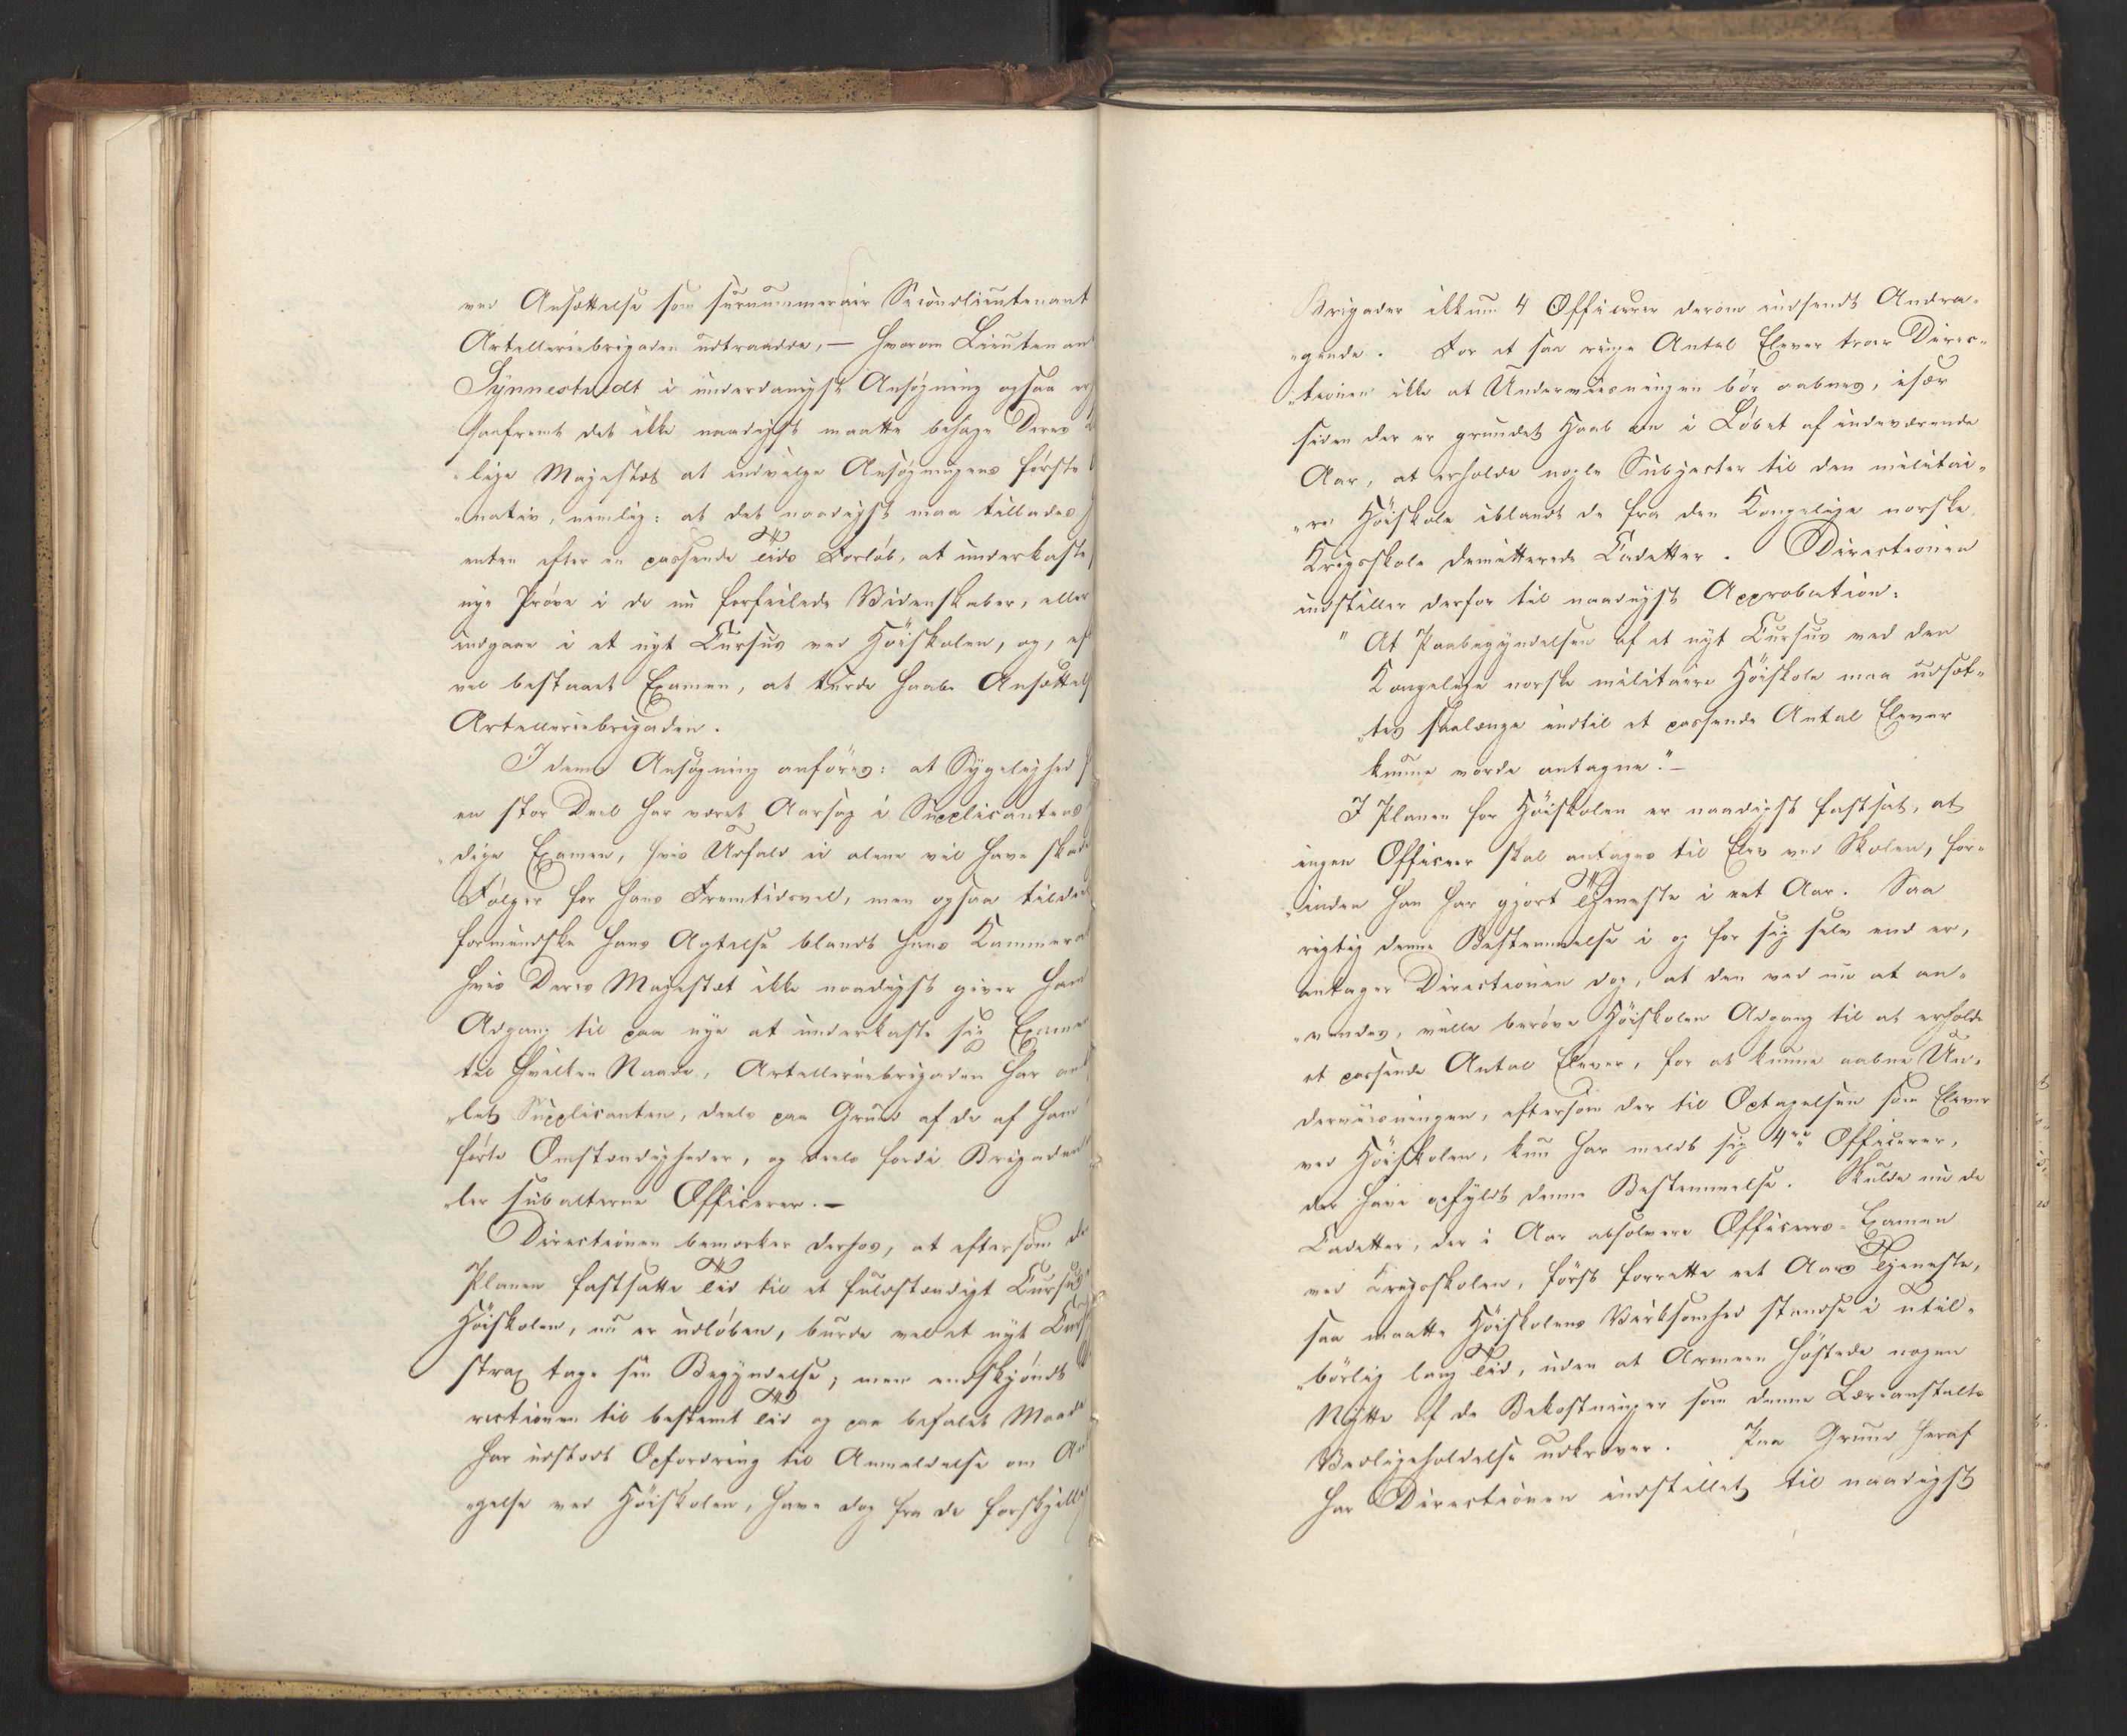 ved Ansættelse som surnummerair Secondlieutenant
Artilleriebrigaden udtraadde, — hvorom Lieutenan
Synnestvedt i underdanigst Ansøgning ogsaa
saafremt det ikke naadigst maatte behage Deres
„lige Majestæt at indvilge Ansøgningens første
„nativ, nemlig: at det naadigst maa tillades
enten efter en passende Tids Forløb, at underkaste
nye Prøve i de nu forfeilede Videnskaber, eller
indgaae i et nyt Cursus ved Høiskolen, og, ef
vel bestaaet Examen, at turde haabe Ansættels
Artilleriebrigaden.
I denne Ansøgning anføres: at Sygelighed
en stor Deel har været Aarsag i Supplicantens
„dige Examen, hvis Udfald ei alene vil have skade
Følger for hans Fremtidsvel, men ogsaa tildeel
formindske hans Agtelse blandt hans Kammera
hvis Deres Majestæt ikke naadigst giver ham
Adgang til paa nye at underkaste sig Exame
til hvilken Naade, Artilleriebrigaden har an
„let Supplicanten, deels paa Grund af de af ham
førte Omstændigheder, og deels fordi Brigaden
„ler subalterne Officerer. —
Directionen bemærker derhos, at eftersom de
Planen fastsatte Tid til et fuldstændigt Cursus
Høiskolen, nu er udløben, burde vel et nyt Curs
strax tage sin Begyndelse; men endskjøndt
rectionen til bestemt Tid og paa befalet Maade
har udstædt Opfordring til Anmeldelse om An
„gelse ved Høiskolen, have dog fra de forskjell
Brigader ikkun 4 Officerer derom indsendt Andra„
„gende. For et saa ringe Antal Elever troer Direc„
„tionen ikke at Underviisningen bør aabnes, især
siden der er grundet Haab om i Løbet af indeværende
Aar, at erholde nogle Subjecter til den militai„
„re Høiskole iblandt de fra den Kongelige norske
Krigsskole demitterede Cadetter. Directionen
indstiller derfor til naadigst Approbation:
" At Paabegyndelsen af et nyt Cursus ved den
Kongelige norske militaire Høiskole maa udsæt„
„tes saalænge indtil et passende Antal Elever
kunne vorde antagne." —
I Planen for Høiskolen er naadigst fastsat, at
ingen Officeer skal antages til Elev ved Skolen, for„
„inden han har gjort Tjeneste i eet Aar. Saa
rigtig denne Bestemmelse i og for sig selv end er,
antager Directionen dog, at den ved nu at an„
„vendes, vilde berøve Høiskolen Adgang til at erholde
et passende Antal Elever, for at kunne aabne Un„
derviisningen, eftersom der til Optagelsen som Elever
ved Høiskolen, kun har meldt sig 4re Officerer,
der have opfyldt denne Bestemmelse. Skulde nu de
Cadetter, der i Aar absolvere Officeers-Examen
ved Krigsskolen, først forrette eet Aars Tjeneste,
saa maatte Høiskolens Virksomhed standse i util„
„børlig lang Tid, uden at Armeen høstede nogen
Nytte af de Bekostninger som denne Læreanstalts
Vedligeholdelse udkræver. Paa Grund heraf
har Directionen indstillet til naadigst